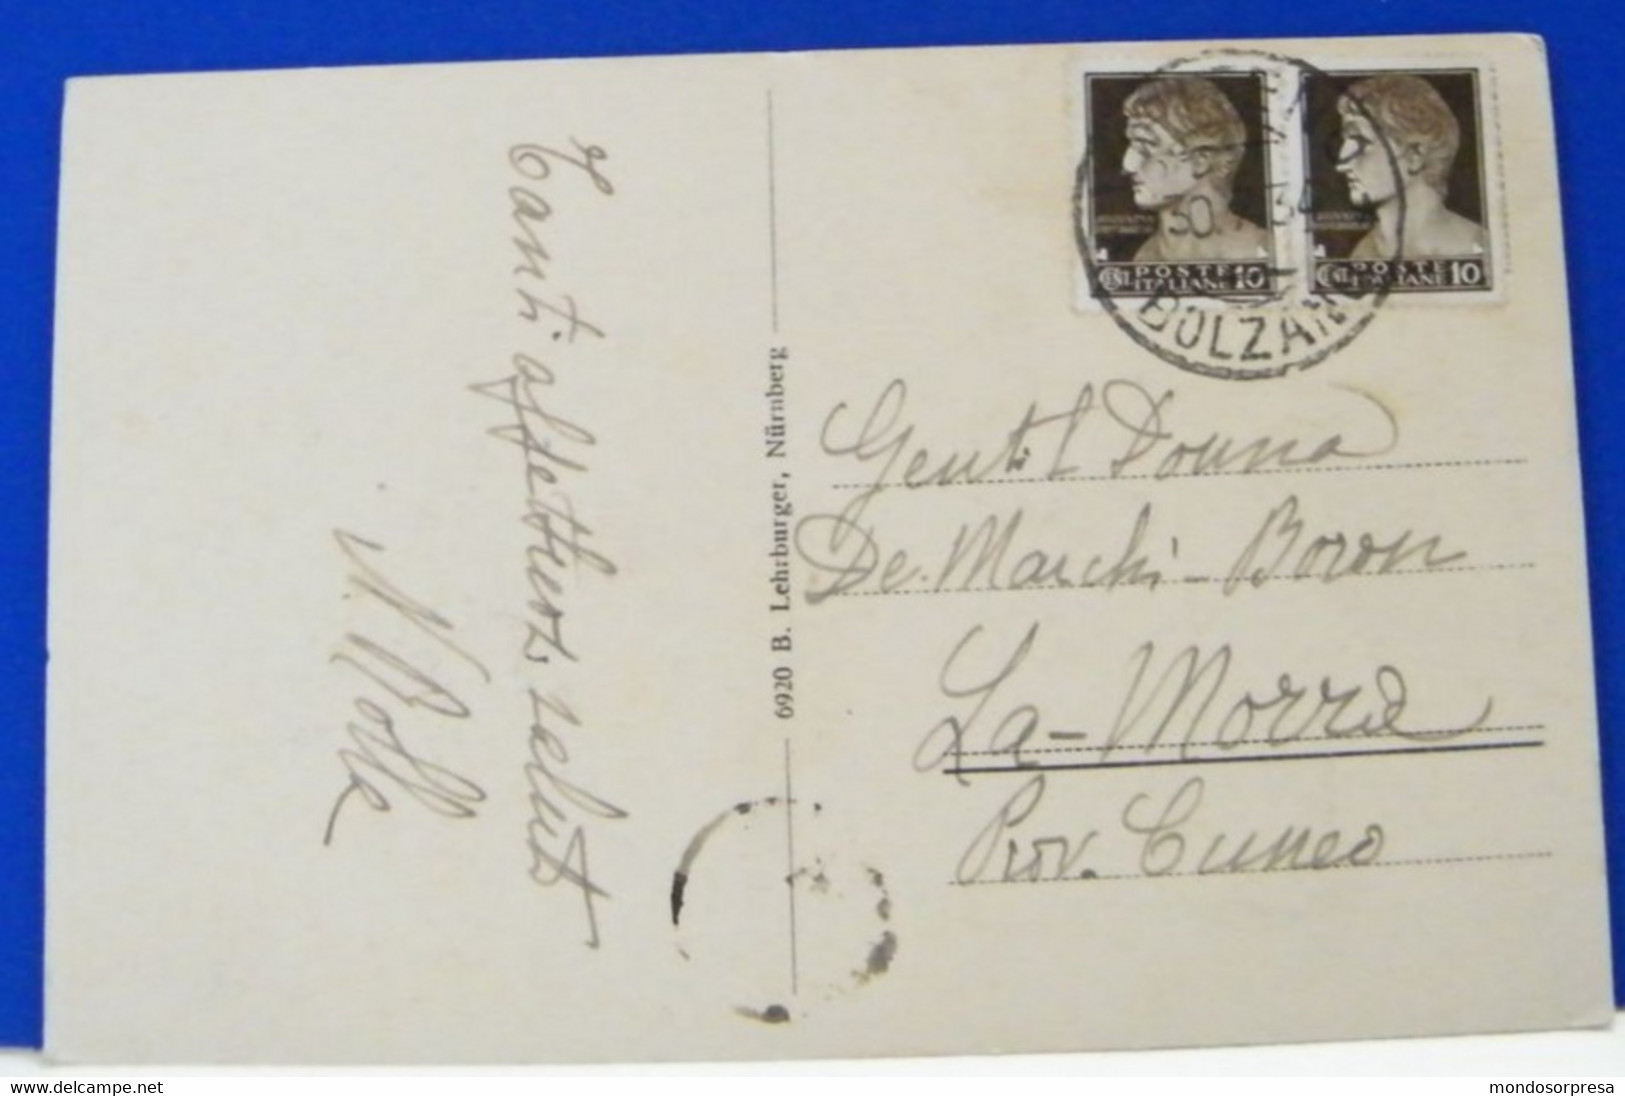 Tanti affettuosi saluti
6920 B. Lehrburger, Nürnberg
POSTE ITALIANE 10
POSTE ITALIANE 10
BOLZANO
30. 34
Gentil Donna
De. Marchi - Boron
La-Morra
Prov. Cuneo
delcampe.net
mondosorpresa